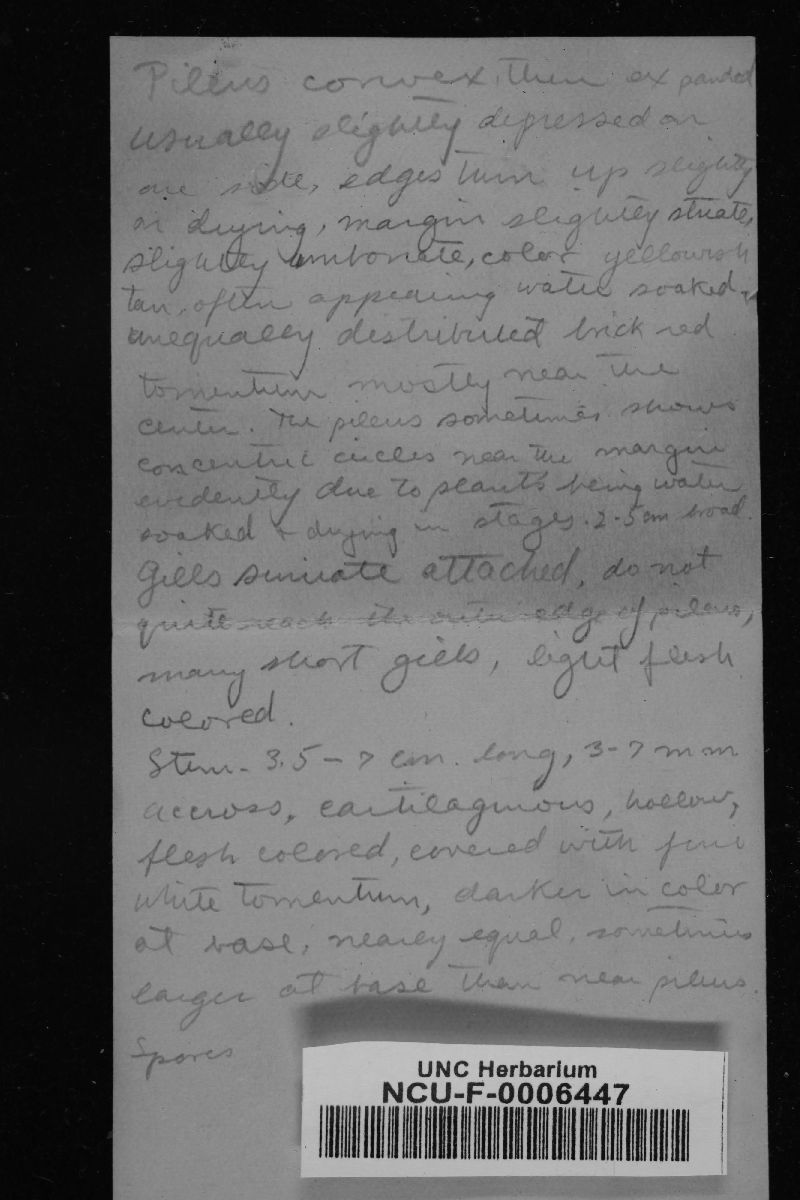 Pileus convex, then expanded
usually slightly depressed on
one side, edges turn up slightly
on drying, margin slightly striate,
slightly umbonate, color yellowish
tan, often appearing water soaked,
unequally distributed brick red
tomentum mostly near the
center. The pileus sometimes shows
concentric circles near the margin
evidently due to plants being water
soaked & drying in stages. 2-5cm broad.
Gills sinuate attached, do not
quite reach the outer edge of pileus,
many short gills, light flesh
colored.
Stem - 3.5 - 7 cm. long, 3-7 mm
accross, cartilaginous, hollow,
flesh colored, covered with fine
white tomentum, darker in color
at base, nearly equal, sometimes
larger at base than near pileus.
Spores
UNC Herbarium
NCU-F-0006447